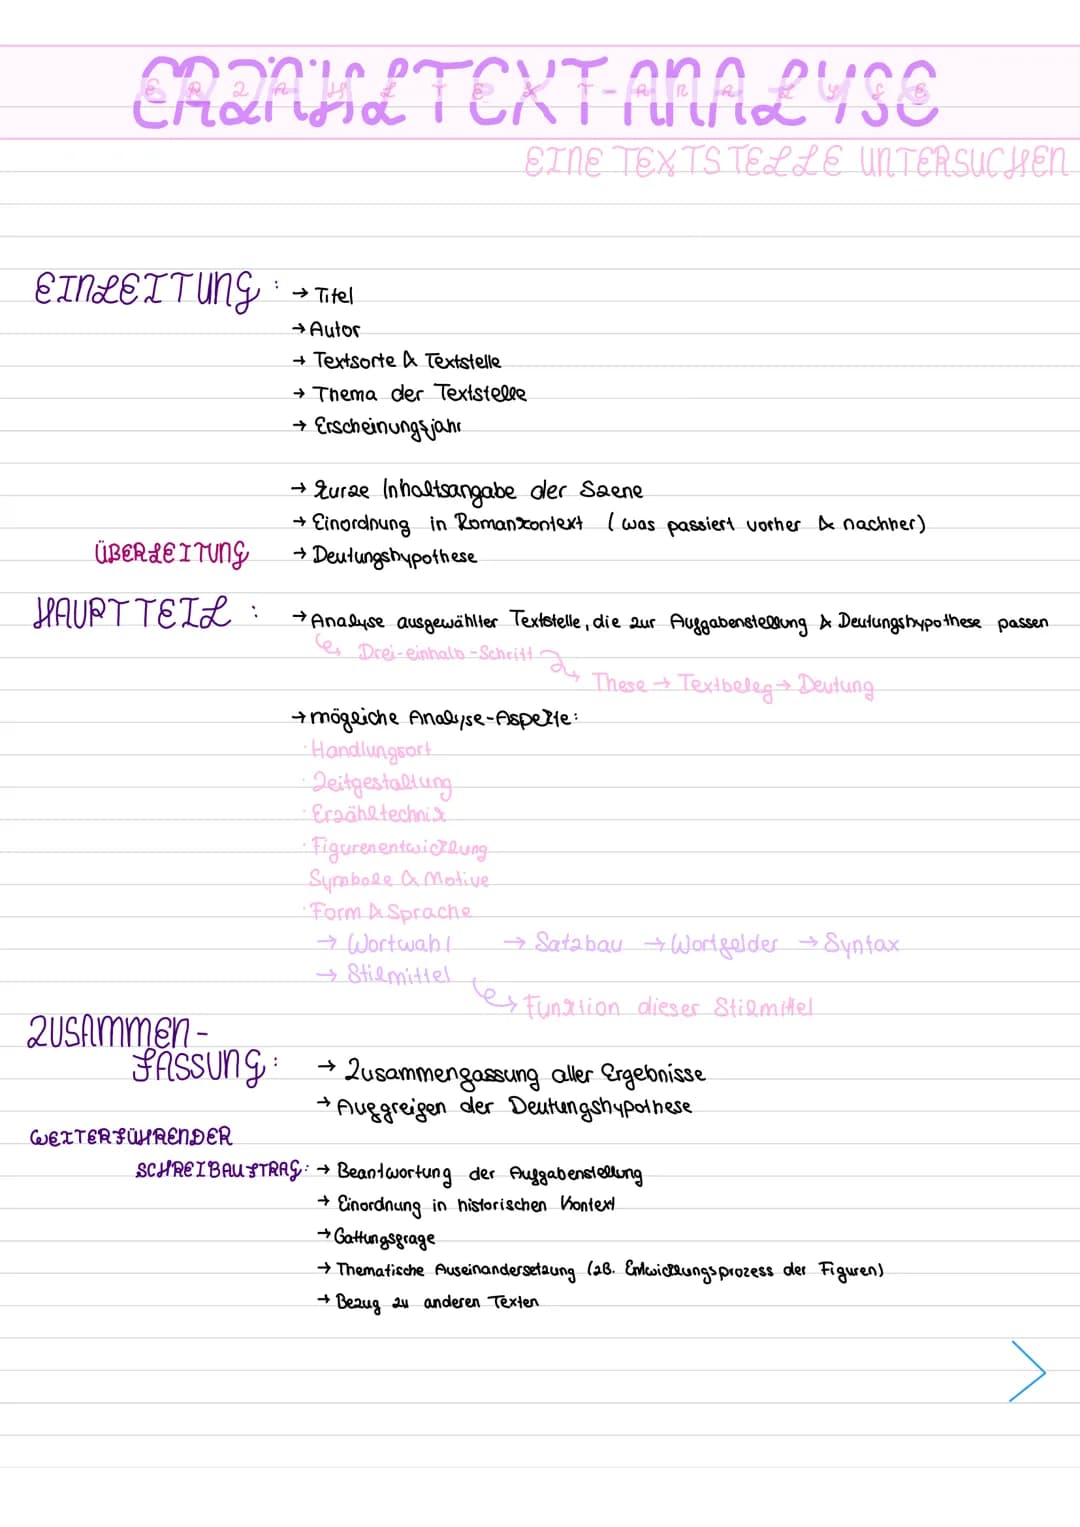 ERZÄHLTEXT-ANALYSE
EINE TEXTSTELLE UNTERSUCHEN
EINLEITUNG: → Titel
→ Autor
→ Textsorte & Textstelle
→ Thema der Textstelle
→ Erscheinungsjahr
→ kurze Inhaltsangabe der Szene
→ Einordnung in Romankontext (was passiert vorher & nachher)
ÜBERLEITUNG → Deutungshypothese
HAUPTTEIL: → Analyse ausgewählter Textstelle, die zur Aufgabenstellung & Deutungshypothese passen
Drei-einhalb-Schritt
These → Textbeleg → Deutung
→ mögliche Analyse-Aspekte:
· Handlungsort
· Zeitgestaltung
· Erzähltechnik
· Figurenentwicklung
Symbole & Motive
· Form & Sprache
→ Wortwahl → Satzbau → Wortfelder → Syntax
→ Stilmittel
Funktion dieser Stilmittel
ZUSAMMEN-
FASSUNG: → Zusammenfassung aller Ergebnisse
→ Aufgreifen der Deutungshypothese
WEITERFÜHRENDER
SCHREIBAUFTRAG: → Beantwortung der Aufgabenstellung
→ Einordnung in historischen Kontext
→ Gattungsfrage
→ Thematische Auseinandersetzung (zB. Entwicklungsprozess der Figuren)
→ Bezug zu anderen Texten